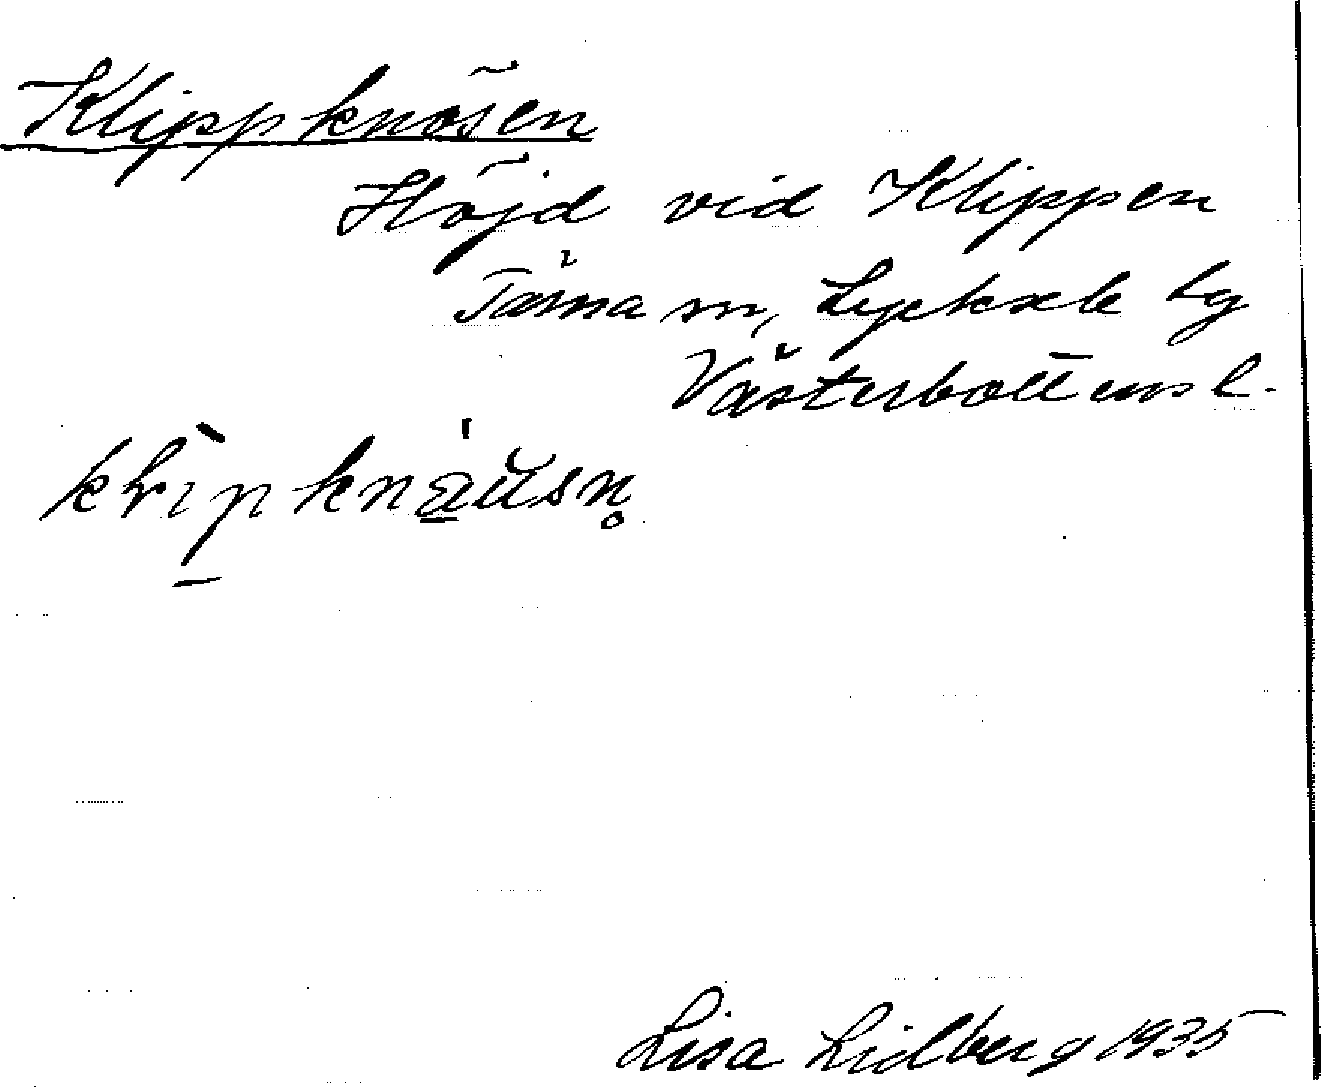 Klippknösen
Höjd vid Klippen
Tärna sn, Lycksele lg
Västerbottens l.
Lisa Lidberg 1935